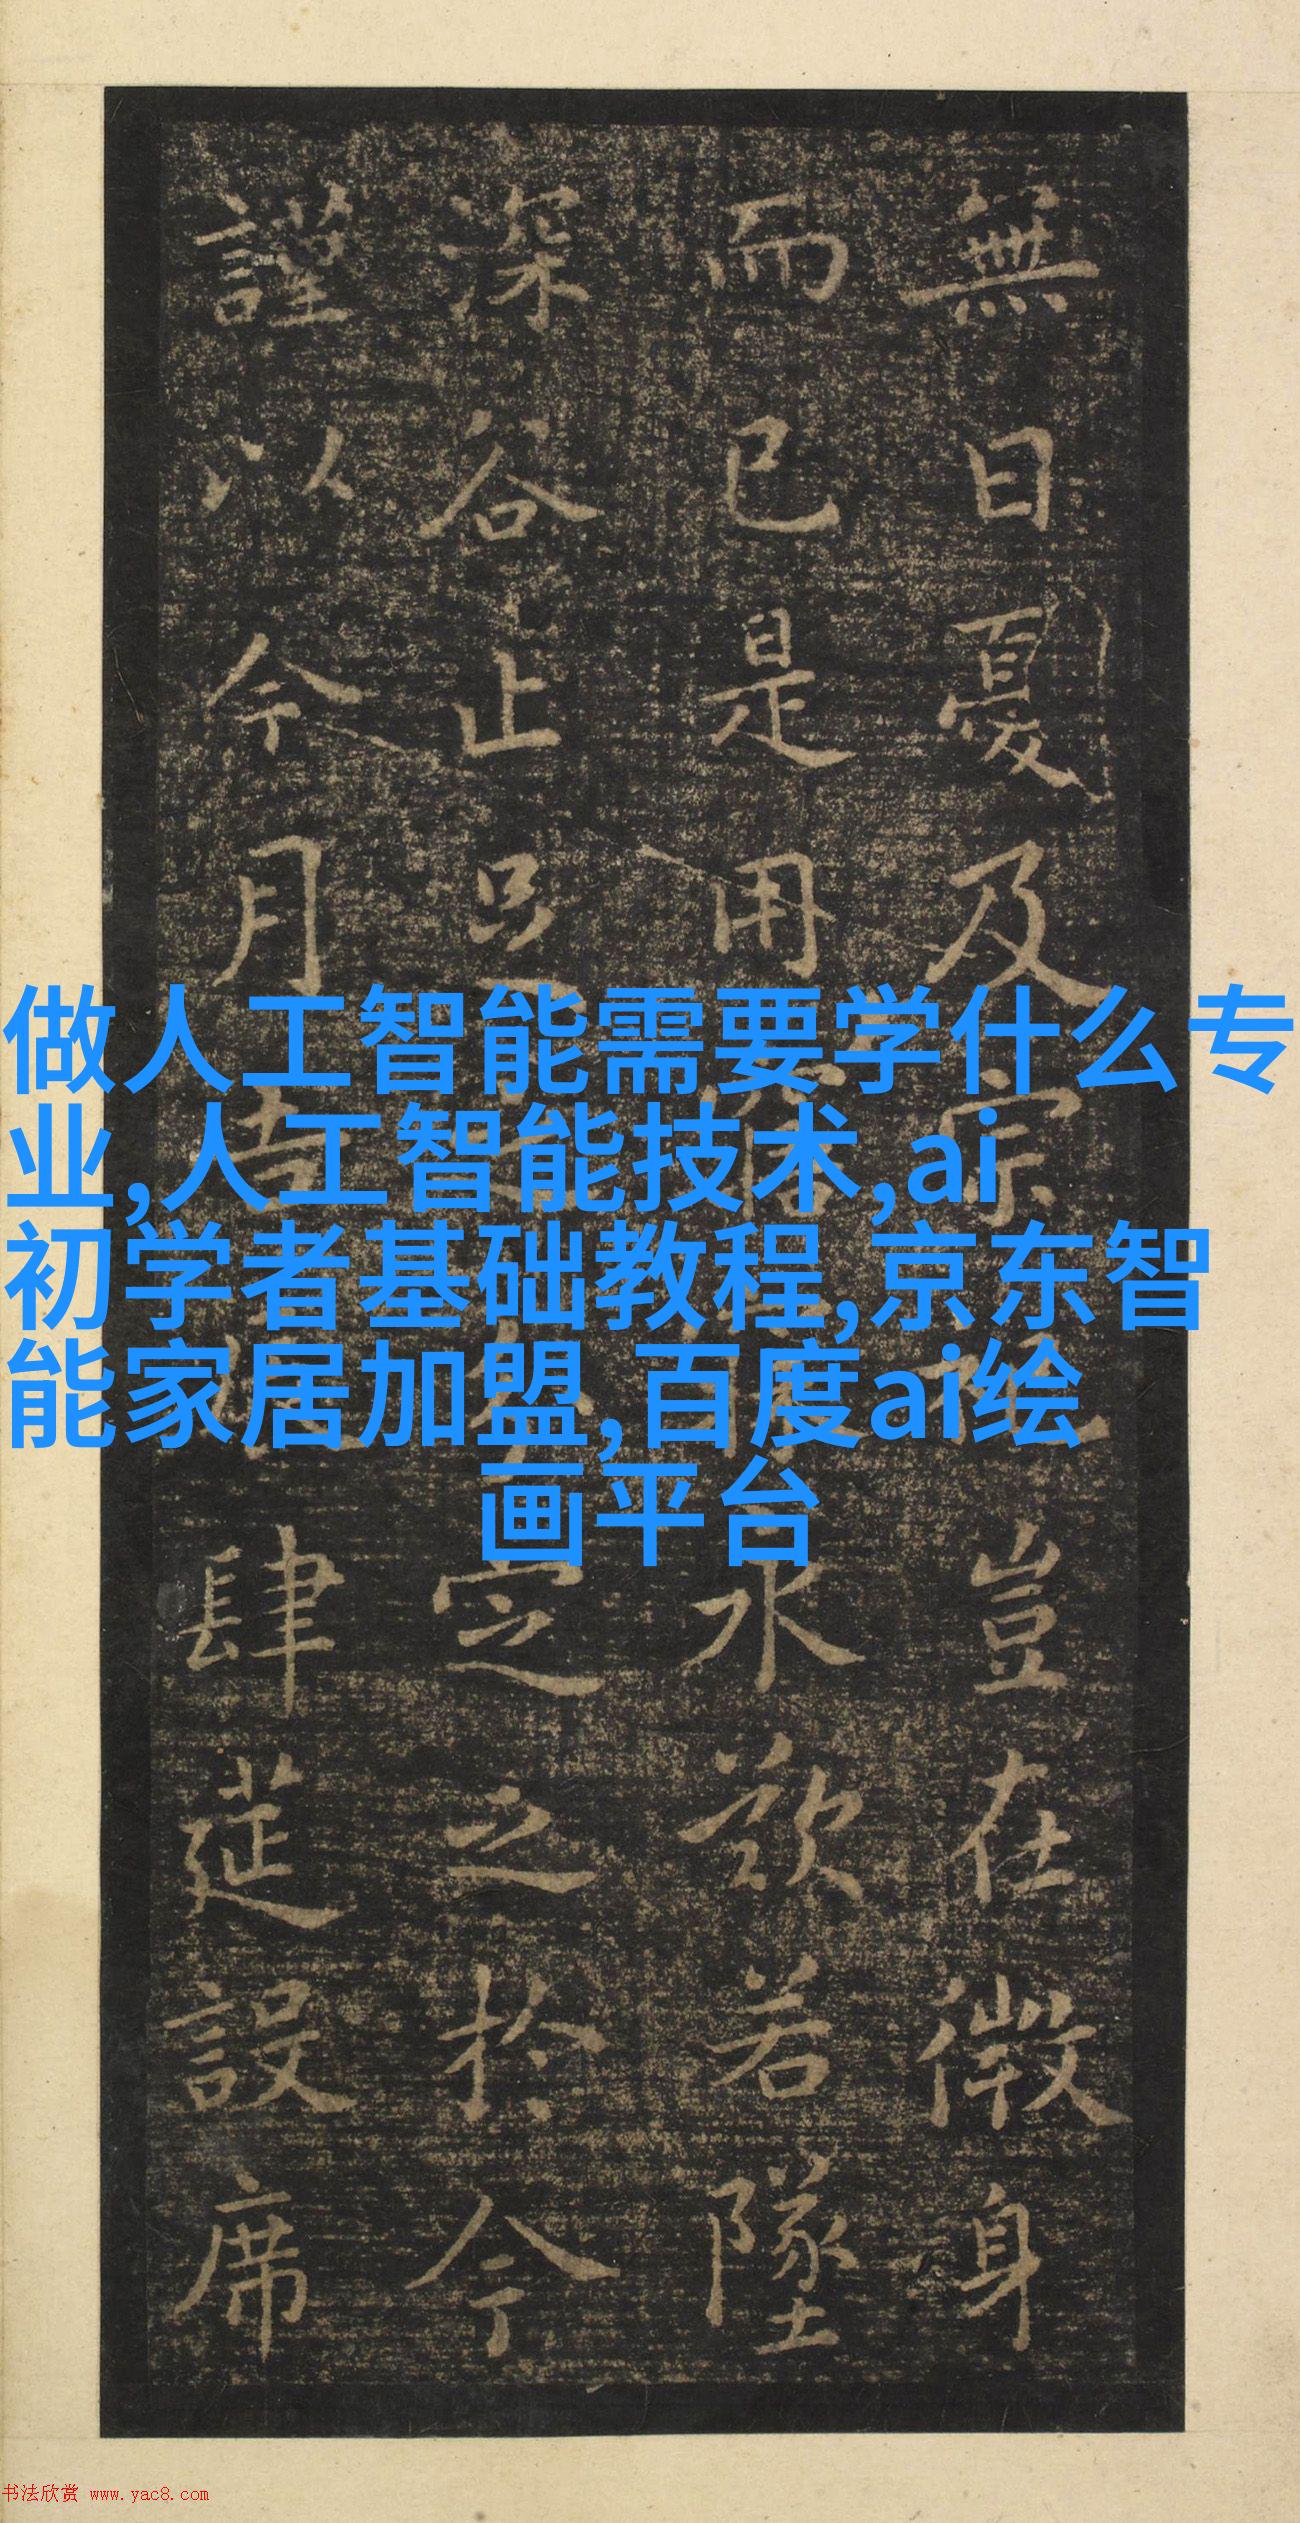 無日憂及宗豈在微身
而已是用永歎若墜
深谷止足定之於今
謹以今月吉肆筵設席
做人工智能需要学什么专
业,人工智能技术,ai
初学者基础教程,京东智
能家居加盟,百度ai绘
画平台
书法欣赏 www.yac8.com